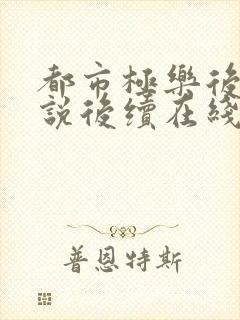 都市極樂後
說後續在綫
普恩特斯